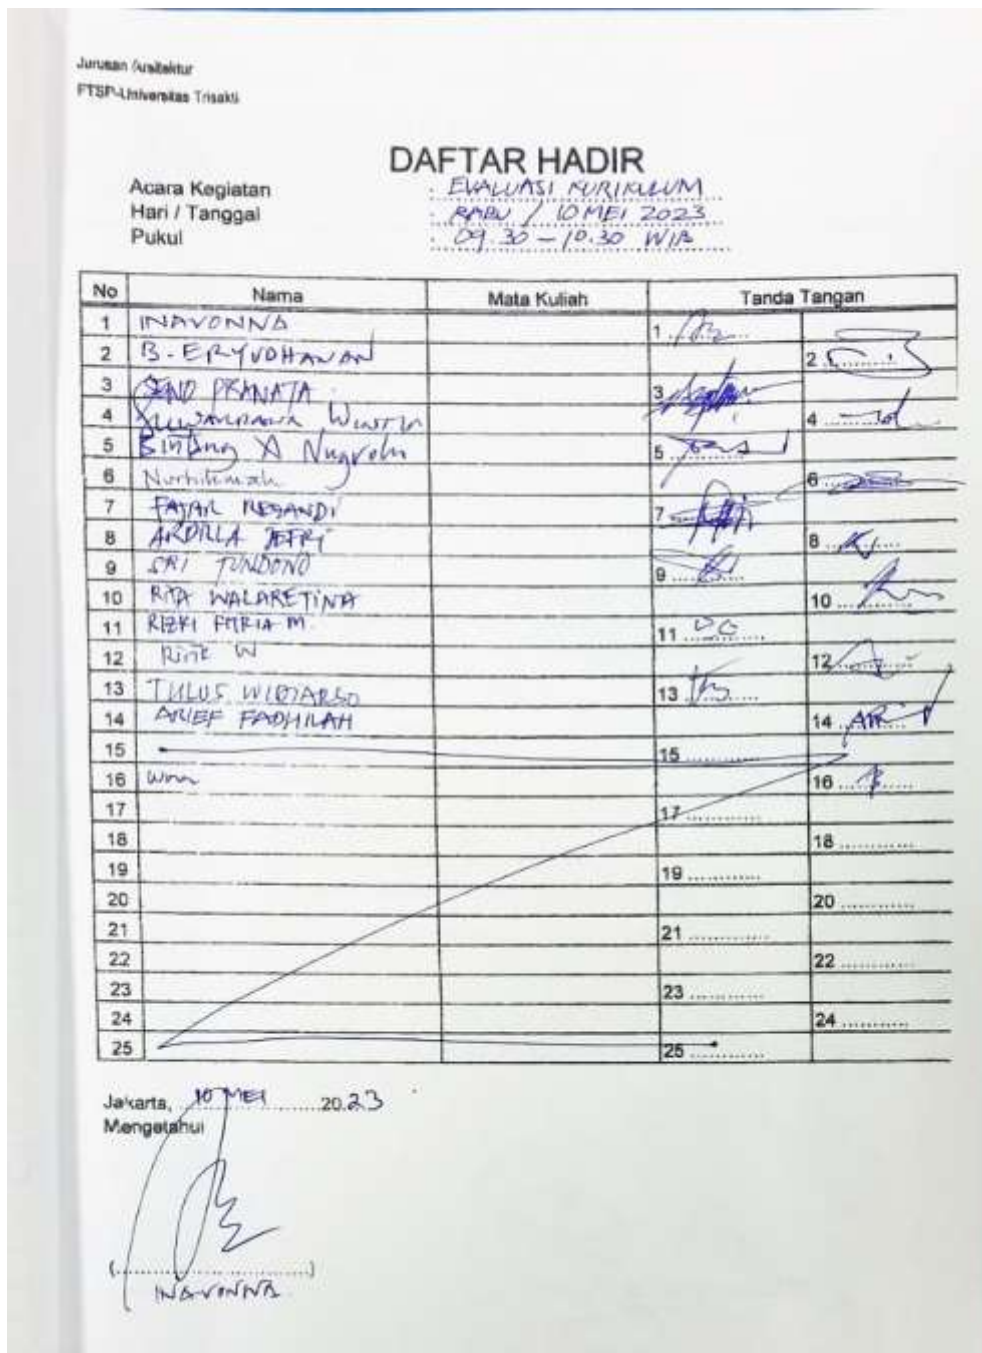 Jurusan Arsitektur
FTSP-Universitas Trisakti
DAFTAR HADIR
Acara Kegiatan : EVALUASI KURIKULUM
Hari / Tanggal : RABU / 10 MEI 2023
Pukul : 09.30 – 10.30 WIB
No Nama Mata Kuliah Tanda Tangan
1 INAVONNA 1
2 B. ERYUDHAWAN 2
3 SENO PRANATA 3
4 4
5 Bintang A Nugroho 5
6 Nurhikmah 6
7 FAJAR REZANDI 7
8 ARDILLA JEFRI 8
9 SRI TUNDONO 9
10 RITA WALARETINA 10
11 RIZKI FITRIA M. 11
12 W 12
13 TULUS WIDIARSO 13
14 ARIEF FADHILAH 14
15 15
16 16
17 17
18 18
19 19
20 20
21 21
22 22
23 23
24 24
25 25
Jakarta, 10 MEI 2023
Mengetahui
(....................)
INAVONNA